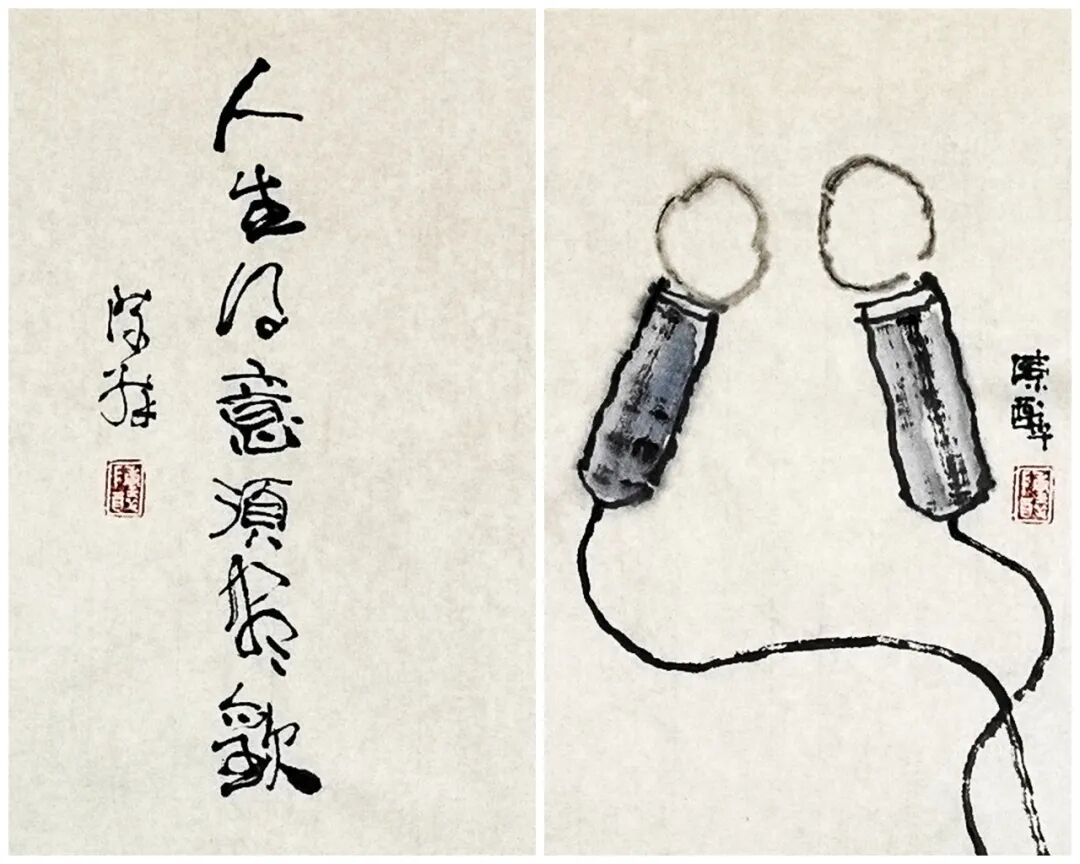 人生得意須盡歡
陳醉
陳醉